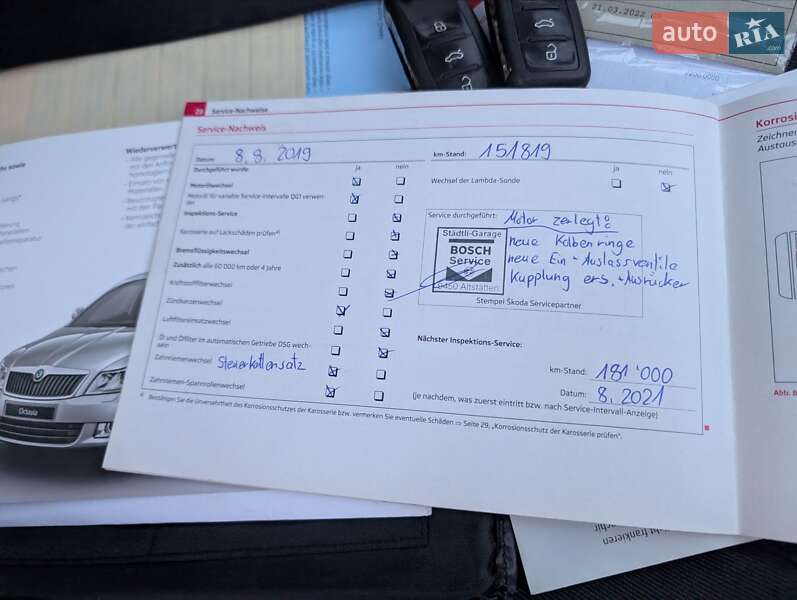 31.03.2022
auto RIA .com
29 Service-Nachweise
Service-Nachweis
Datum: 8.8.2019
km-Stand: 151819
Durchgeführt wurde: ja nein
ja nein
Motorölwechsel
Wechsel der Lambda-Sonde
Motoröl für variable Service-Intervalle (QG1 verwenden)
Inspektions-Service
Karosserie auf Lackschäden prüfen
Bremsflüssigkeitswechsel
Zusätzlich alle 60 000 km oder 4 Jahre
Kraftstofffilterwechsel
Zündkerzenwechsel
Luftfiltereinsatzwechsel
Öl und Ölfilter im automatischen Getriebe DSG wechseln
Zahnriemenwechsel Steuerkettensatz
Zahnriemen-Spannrollenwechsel
Service durchgeführt: Motor zerlegt
neue Kolbenringe
neue Ein + Auslassventile
Kupplung ers. + Ausrücker
Städtli-Garage
BOSCH
Service
9450 Altstätten
Stempel Škoda Servicepartner
Nächster Inspektions-Service:
km-Stand: 181'000
Datum: 8.2021
(je nachdem, was zuerst eintritt bzw. nach Service-Intervall-Anzeige)
Bestätigen Sie die Unversehrtheit des Korrosionsschutzes der Karosserie bzw. vermerken Sie eventuelle Schäden ⇒ Seite 29, „Korrosionsschutz der Karosserie prüfen".
Wiederverwert
Octavia
Korrosi
Zeichnen
Austaus
Abb. B
frankieren